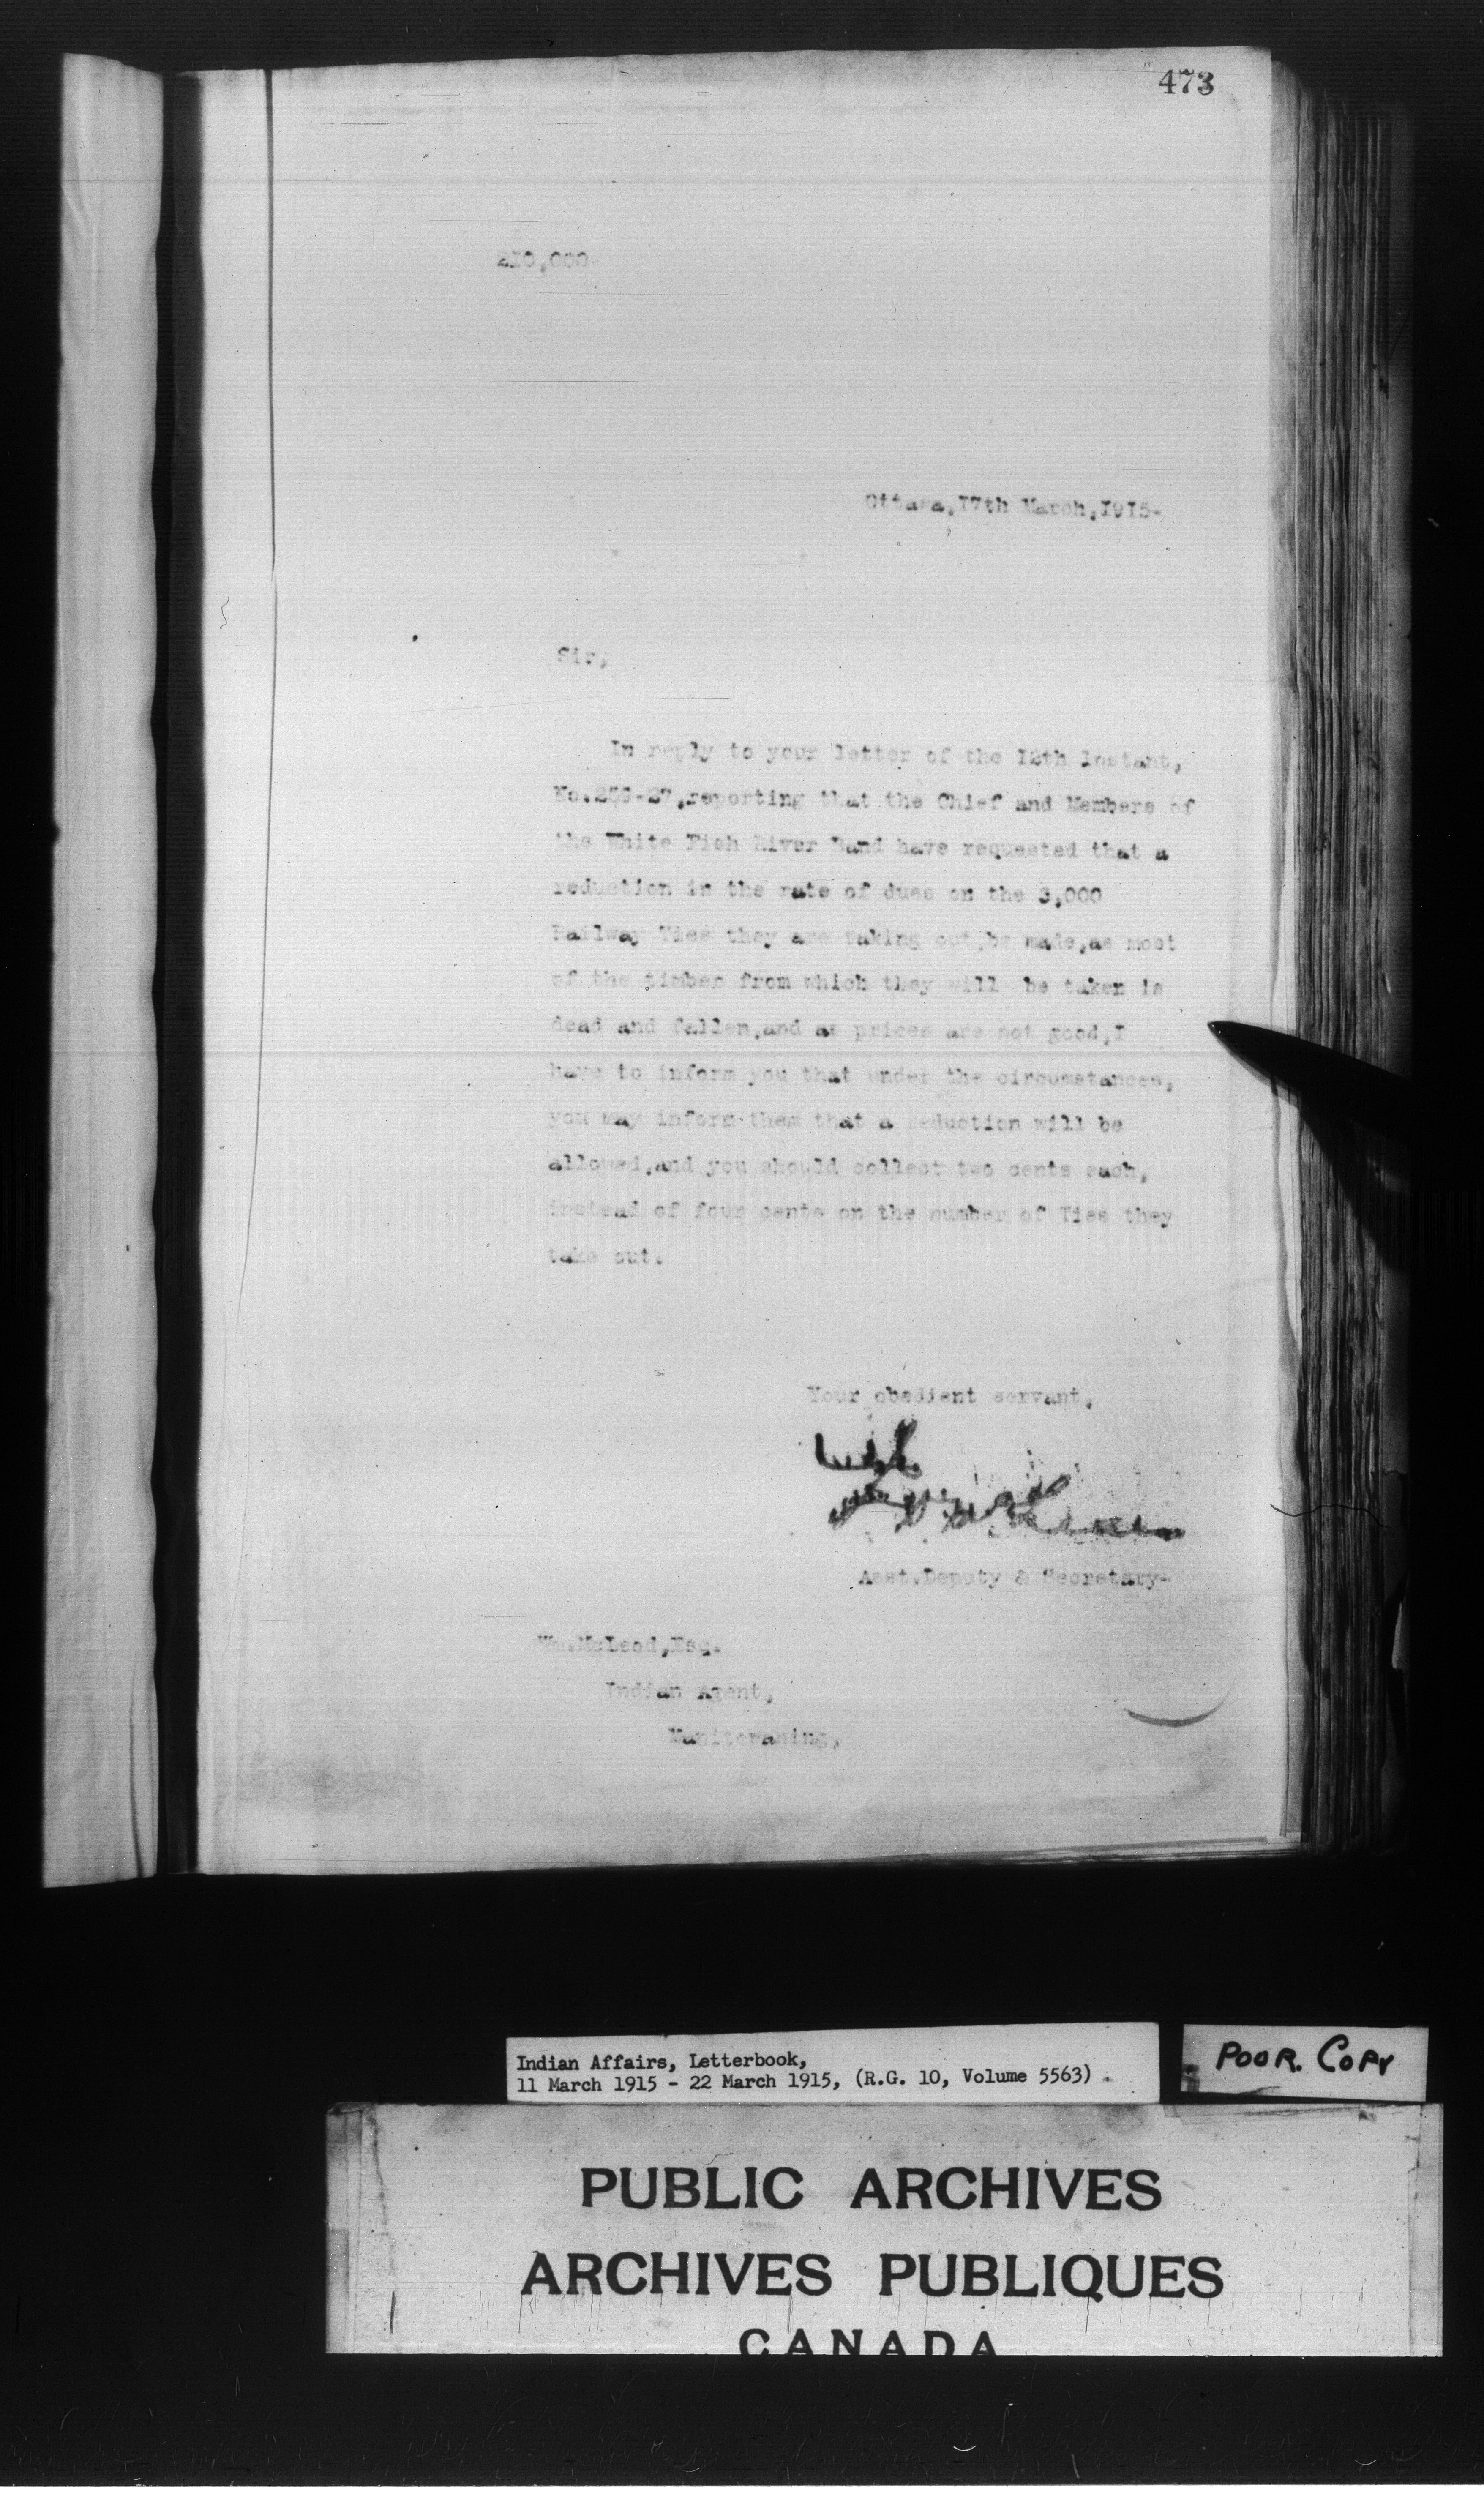 473
210,000-
Ottawa,17th March,1915-
Sir,
In reply to your letter of the 12th Instant,
No.259-27,reporting that the Chief and Members of
the White Fish River Band have requested that a
reduction in the rate of dues on the 3,000
Railway Ties they are taking out,be made,as most
of the timber from which they will be taken is
dead and fallen,and as prices are not good,I
have to inform you that under the circumstances,
you may inform them that a reduction will be
allowed,and you should collect two cents each,
instead of four cents on the number of Ties they
take out.
Your obedient servant,
Asst.Deputy & Secretary-
Wm.McLeod,Esq.
Indian Agent,
Manitowaning,
Indian Affairs, Letterbook,
11 March 1915 - 22 March 1915, (R.G. 10, Volume 5563)
POOR. COPY
PUBLIC ARCHIVES
ARCHIVES PUBLIQUES
CANADA